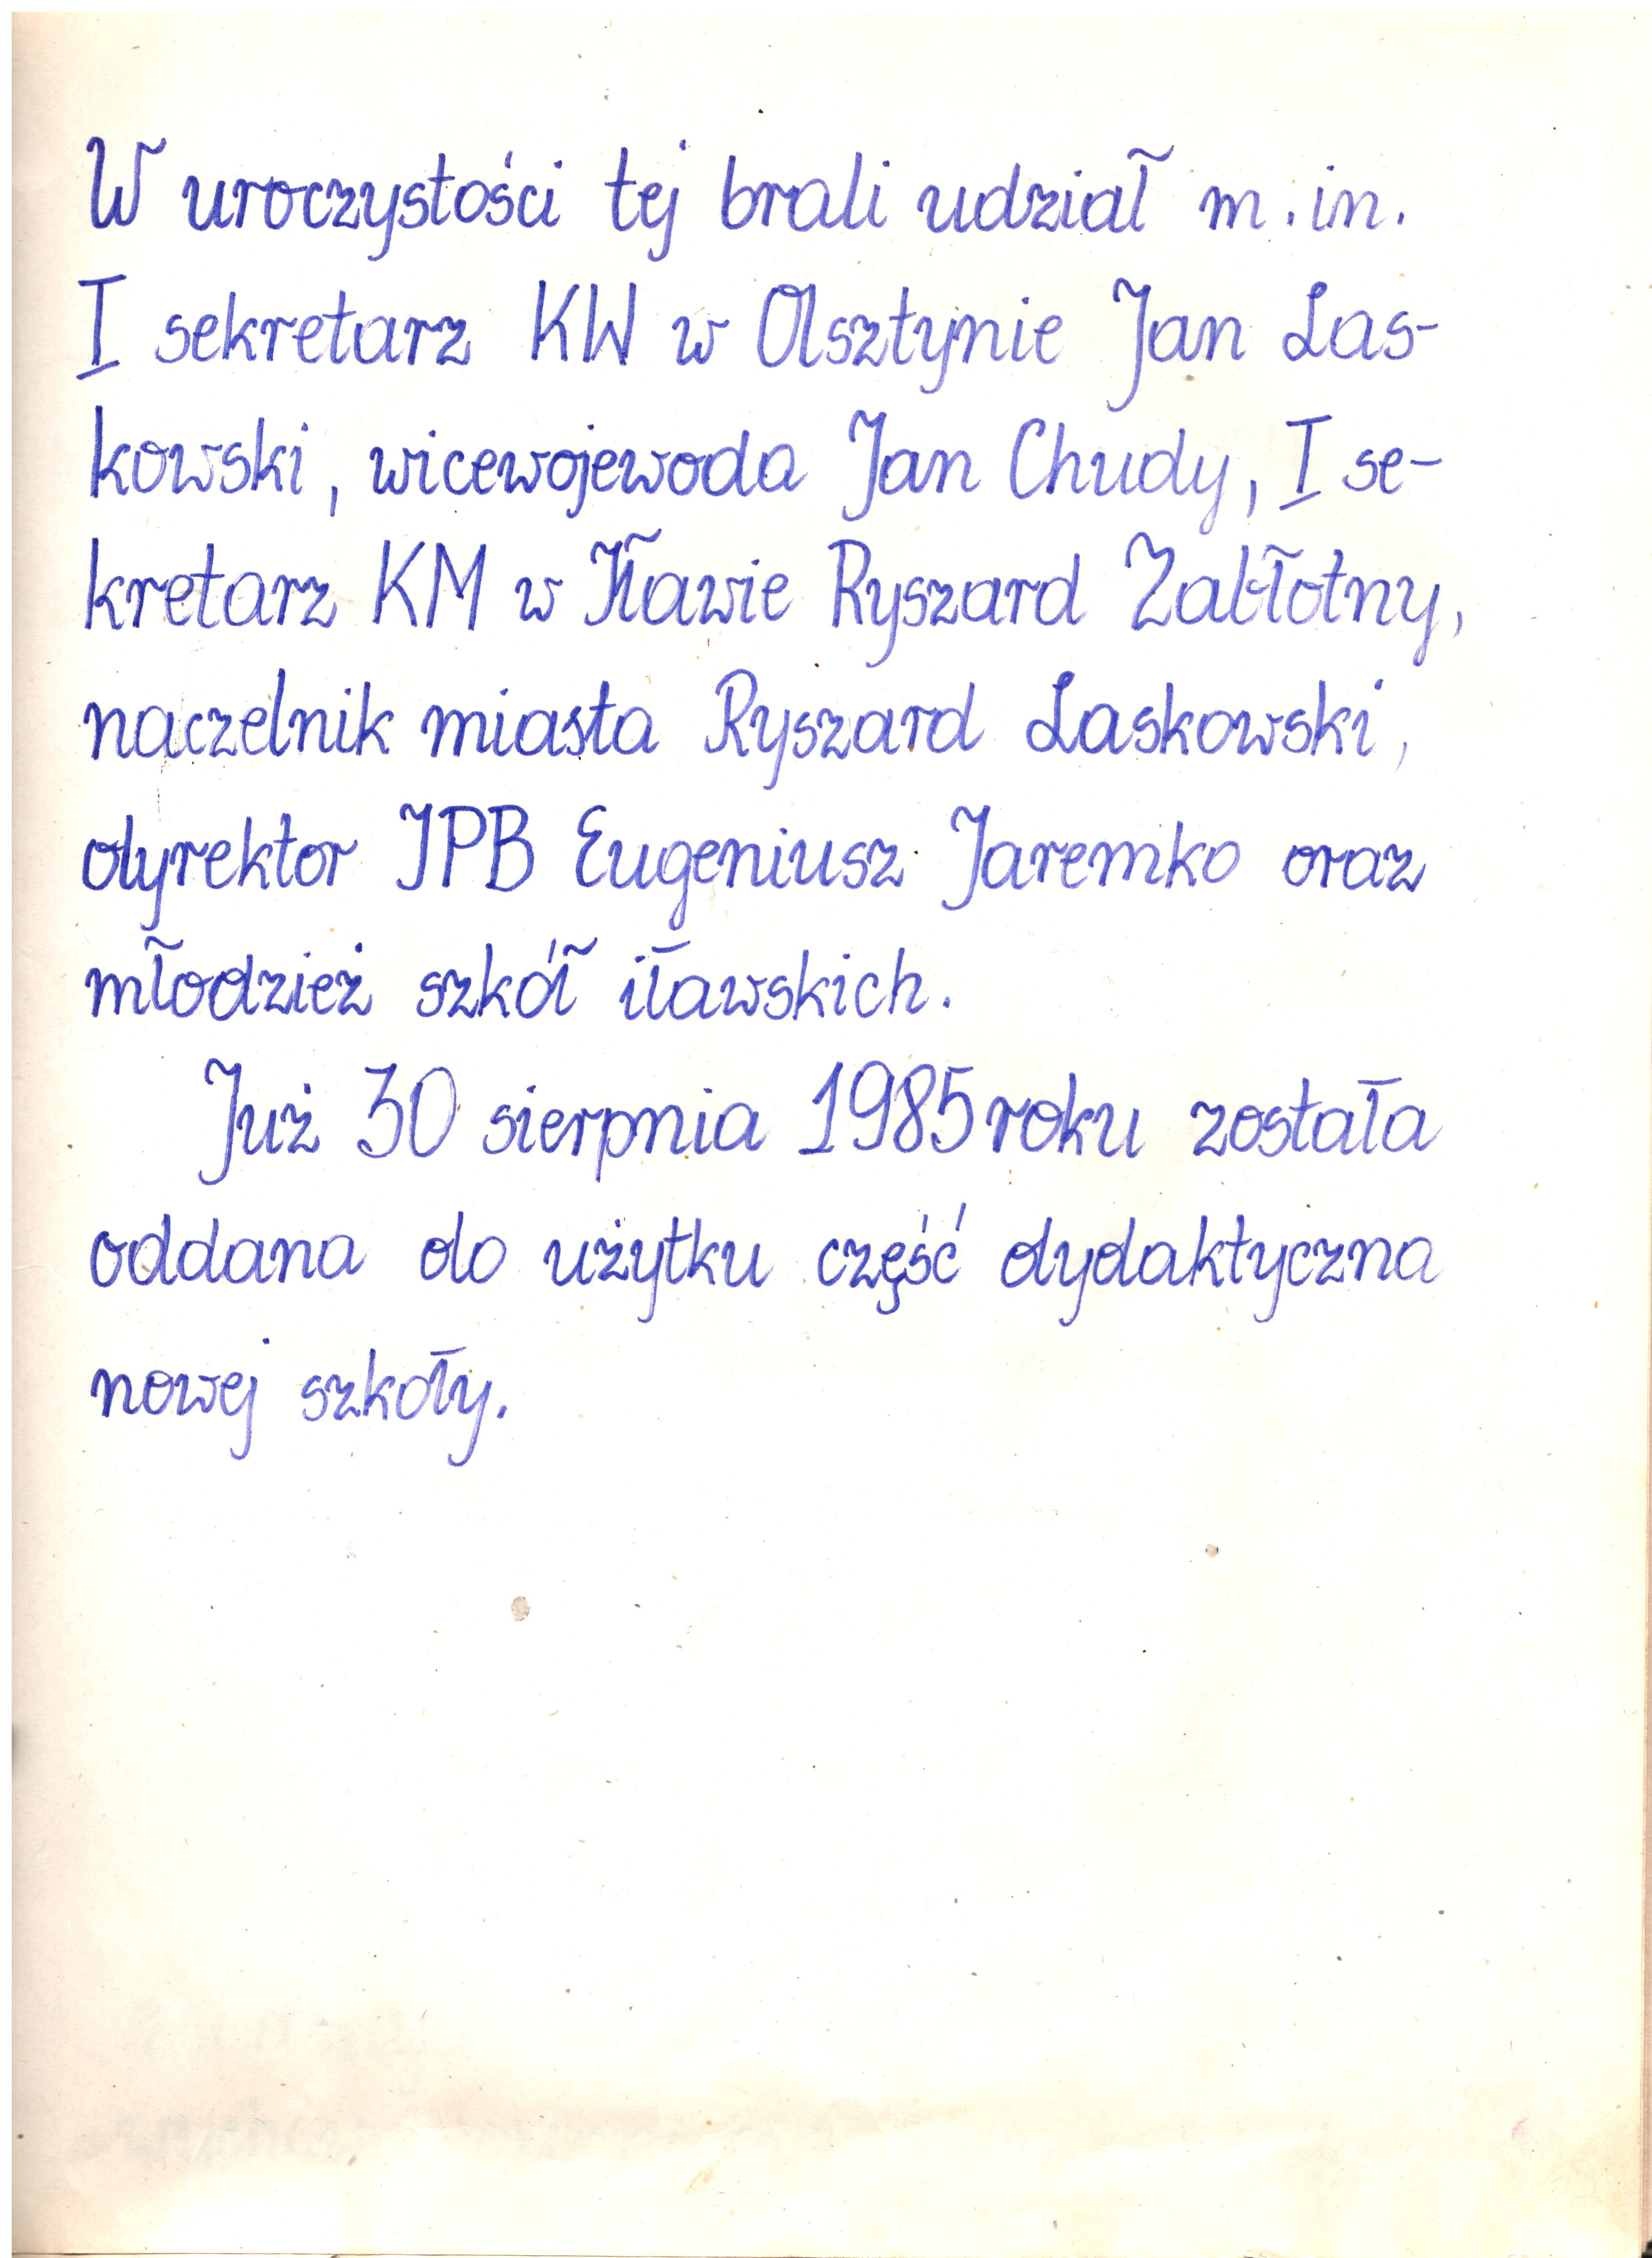 W uroczystości tej brali udział m.in.
I sekretarz KW w Olsztynie Jan Las-
kowski, wicewojewoda Jan Chudy, I se-
kretarz KM w Iławie Ryszard Zabłotny,
naczelnik miasta Ryszard Laskowski,
dyrektor IPB Eugeniusz Jaremko oraz
młodzież szkół iławskich.
Już 30 sierpnia 1985 roku została
oddana do użytku część dydaktyczna
nowej szkoły.